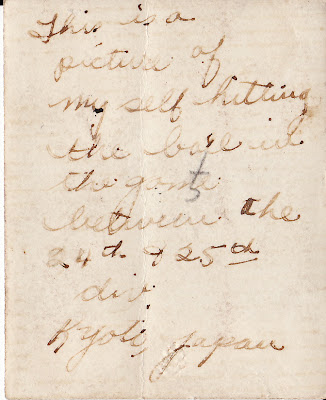 This is a
picture of
my self hitting
the ball in
the game
5
between the
24th & 25th
div.
Kyoto, Japan